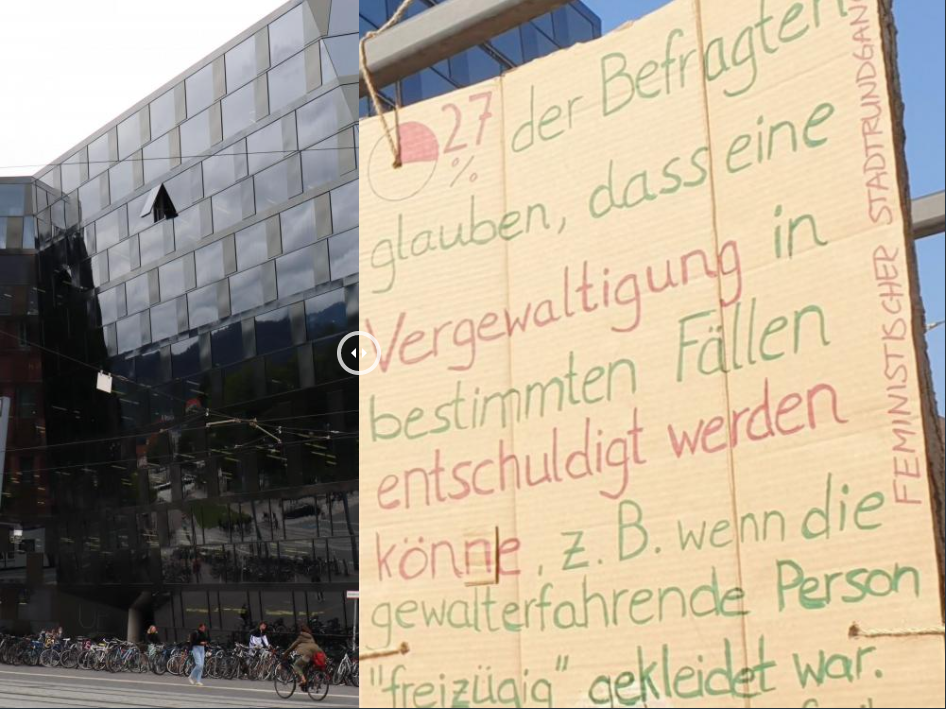 27 % der Befragten
glauben, dass eine
Vergewaltigung in
bestimmten Fällen
entschuldigt werden
könne, z. B. wenn die
gewalterfahrende Person
"freizügig" gekleidet war.
FEMINISTISCHER STADTRUNDGANG